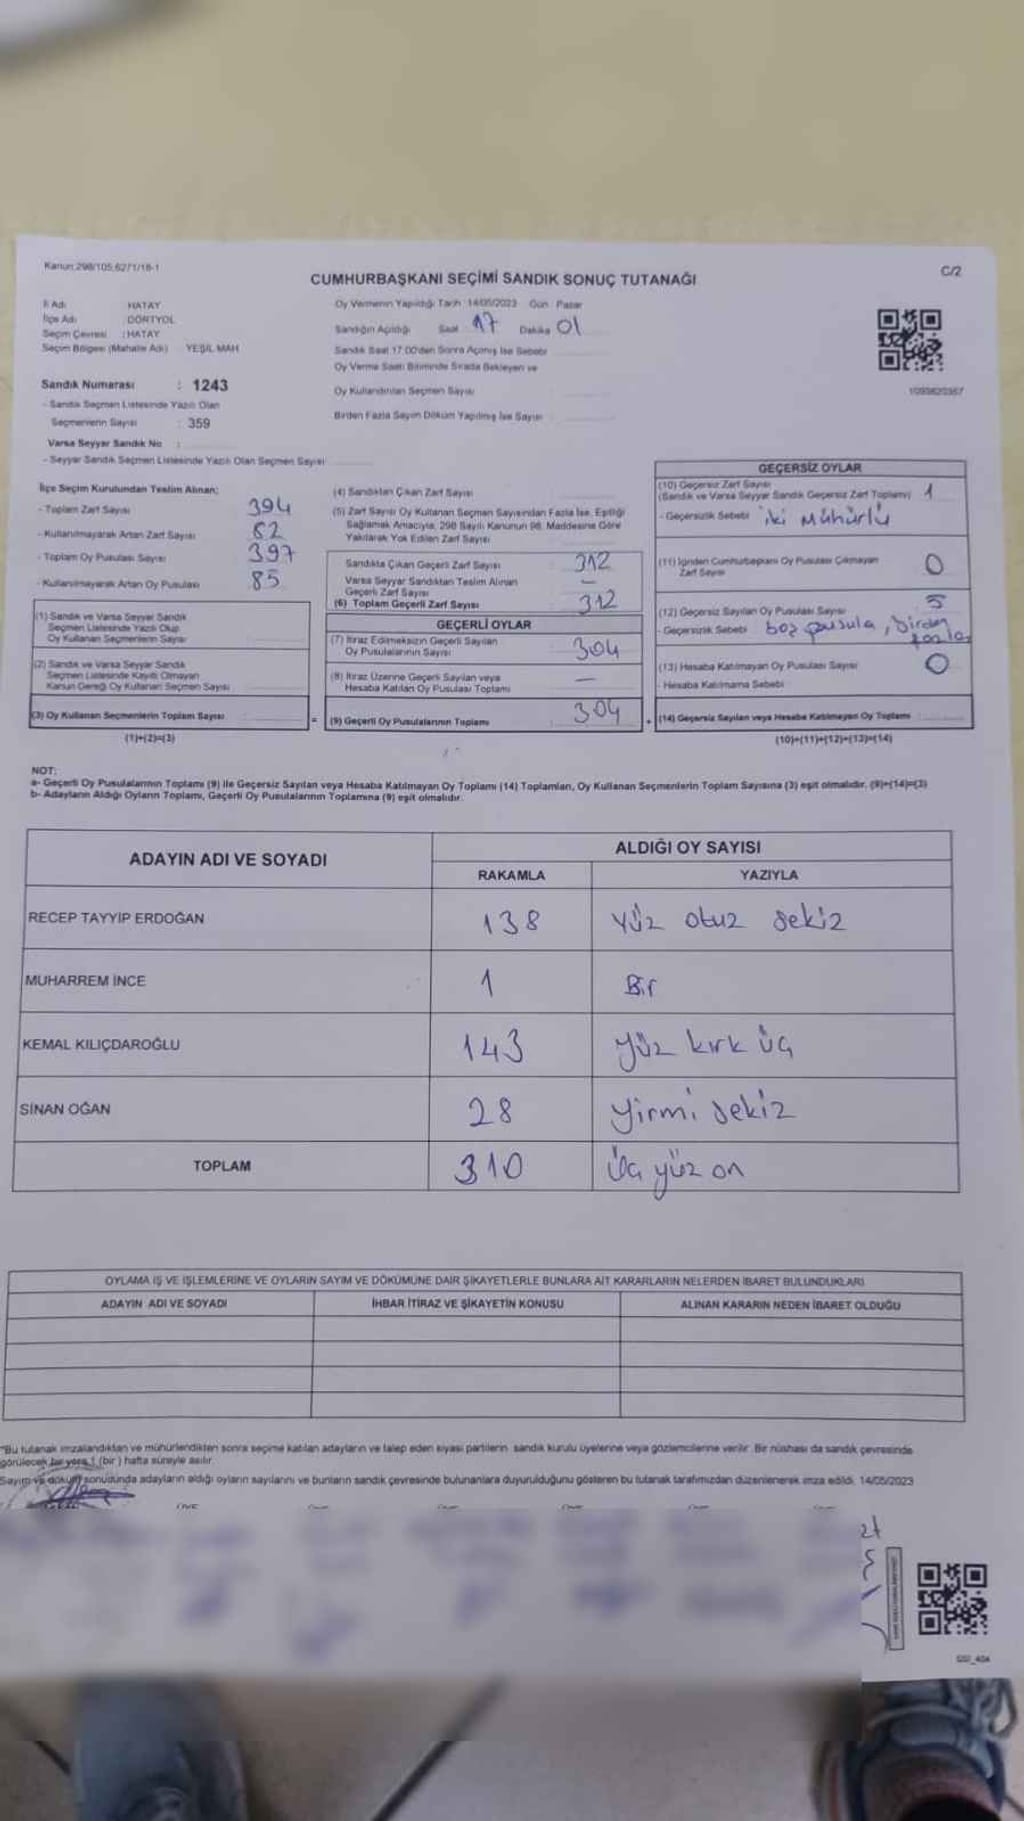 Kanun:298/105,6271/18-1
C/2
CUMHURBAŞKANI SEÇİMİ SANDIK SONUÇ TUTANAĞI
İl Adı HATAY
İlçe Adı DÖRTYOL
Seçim Çevresi : HATAY
Seçim Bölgesi (Mahalle Adı) YEŞİL MAH
Sandık Numarası : 1243
- Sandık Seçmen Listesinde Yazılı Olan
Seçmenlerin Sayısı : 359
Varsa Seyyar Sandık No :
- Seyyar Sandık Seçmen Listesinde Yazılı Olan Seçmen Sayısı
Oy Vermenin Yapıldığı Tarih 14/05/2023 Gün Pazar
Sandığın Açıldığı Saat 17 Dakika 01
Sandık Saat 17.00'den Sonra Açılmış İse Sebebi
Oy Verme Saati Bitiminde Sırada Bekleyen ve
Oy Kullandırılan Seçmen Sayısı
Birden Fazla Sayım Döküm Yapılmış İse Sayısı
İlçe Seçim Kurulundan Teslim Alınan:
- Toplam Zarf Sayısı 394
- Kullanılmayarak Artan Zarf Sayısı 82
- Toplam Oy Pusulası Sayısı 397
- Kullanılmayarak Artan Oy Pusulası 85
(1) Sandık ve Varsa Seyyar Sandık
Seçmen Listesinde Yazılı Olup
Oy Kullanan Seçmenlerin Sayısı
(2) Sandık ve Varsa Seyyar Sandık
Seçmen Listesinde Kayıtlı Olmayan
Kanun Gereği Oy Kullanan Seçmen Sayısı
(3) Oy Kullanan Seçmenlerin Toplam Sayısı
(1)+(2)=(3)
(4) Sandıktan Çıkan Zarf Sayısı
(5) Zarf Sayısı Oy Kullanan Seçmen Sayısından Fazla İse, Eşitliği
Sağlamak Amacıyla, 298 Sayılı Kanunun 98. Maddesine Göre
Yakılarak Yok Edilen Zarf Sayısı
Sandıkta Çıkan Geçerli Zarf Sayısı 312
Varsa Seyyar Sandıktan Teslim Alınan
Geçerli Zarf Sayısı —
(6) Toplam Geçerli Zarf Sayısı 312
GEÇERLİ OYLAR
(7) İtiraz Edilmeksizin Geçerli Sayılan
Oy Pusulalarının Sayısı 304
(8) İtiraz Üzerine Geçerli Sayılan veya
Hesaba Katılan Oy Pusulası Toplamı —
= (9) Geçerli Oy Pusulalarının Toplamı 304
GEÇERSİZ OYLAR
(10) Geçersiz Zarf Sayısı
(Sandık ve Varsa Seyyar Sandık Geçersiz Zarf Toplamı) 1
- Geçersizlik Sebebi iki Mühürlü
(11) İçinden Cumhurbaşkanı Oy Pusulası Çıkmayan
Zarf Sayısı 0
(12) Geçersiz Sayılan Oy Pusulası Sayısı 5
- Geçersizlik Sebebi boş pusula, birden
fazla
(13) Hesaba Katılmayan Oy Pusulası Sayısı 0
- Hesaba Katılmama Sebebi
+ (14) Geçersiz Sayılan veya Hesaba Katılmayan Oy Toplamı
(10)+(11)+(12)+(13)=(14)
NOT:
a- Geçerli Oy Pusulalarının Toplamı (9) ile Geçersiz Sayılan veya Hesaba Katılmayan Oy Toplamı (14) Toplamları, Oy Kullanan Seçmenlerin Toplam Sayısına (3) eşit olmalıdır. (9)+(14)=(3)
b- Adayların Aldığı Oyların Toplamı, Geçerli Oy Pusulalarının Toplamına (9) eşit olmalıdır.
ADAYIN ADI VE SOYADI
ALDIĞI OY SAYISI
RAKAMLA YAZIYLA
RECEP TAYYİP ERDOĞAN 138 yüz otuz sekiz
MUHARREM İNCE 1 Bir
KEMAL KILIÇDAROĞLU 143 yüz kırk üç
SİNAN OĞAN 28 yirmi sekiz
TOPLAM 310 üç yüz on
OYLAMA İŞ VE İŞLEMLERİNE VE OYLARIN SAYIM VE DÖKÜMÜNE DAİR ŞİKAYETLERLE BUNLARA AİT KARARLARIN NELERDEN İBARET BULUNDUKLARI
ADAYIN ADI VE SOYADI İHBAR İTİRAZ VE ŞİKAYETİN KONUSU ALINAN KARARIN NEDEN İBARET OLDUĞU
"Bu tutanak imzalandıktan ve mühürlendikten sonra seçime katılan adayların ve talep eden siyasi partilerin sandık kurulu üyelerine veya gözlemcilerine verilir. Bir nüshası da sandık çevresinde
görülecek bir yere 1 (bir) hafta süreyle asılır.
Sayım ve döküm sonucunda adayların aldığı oyların sayılarını ve bunların sandık çevresinde bulunanlara duyurulduğunu gösteren bu tutanak tarafımızdan düzenlenerek imza edildi. 14/05/2023